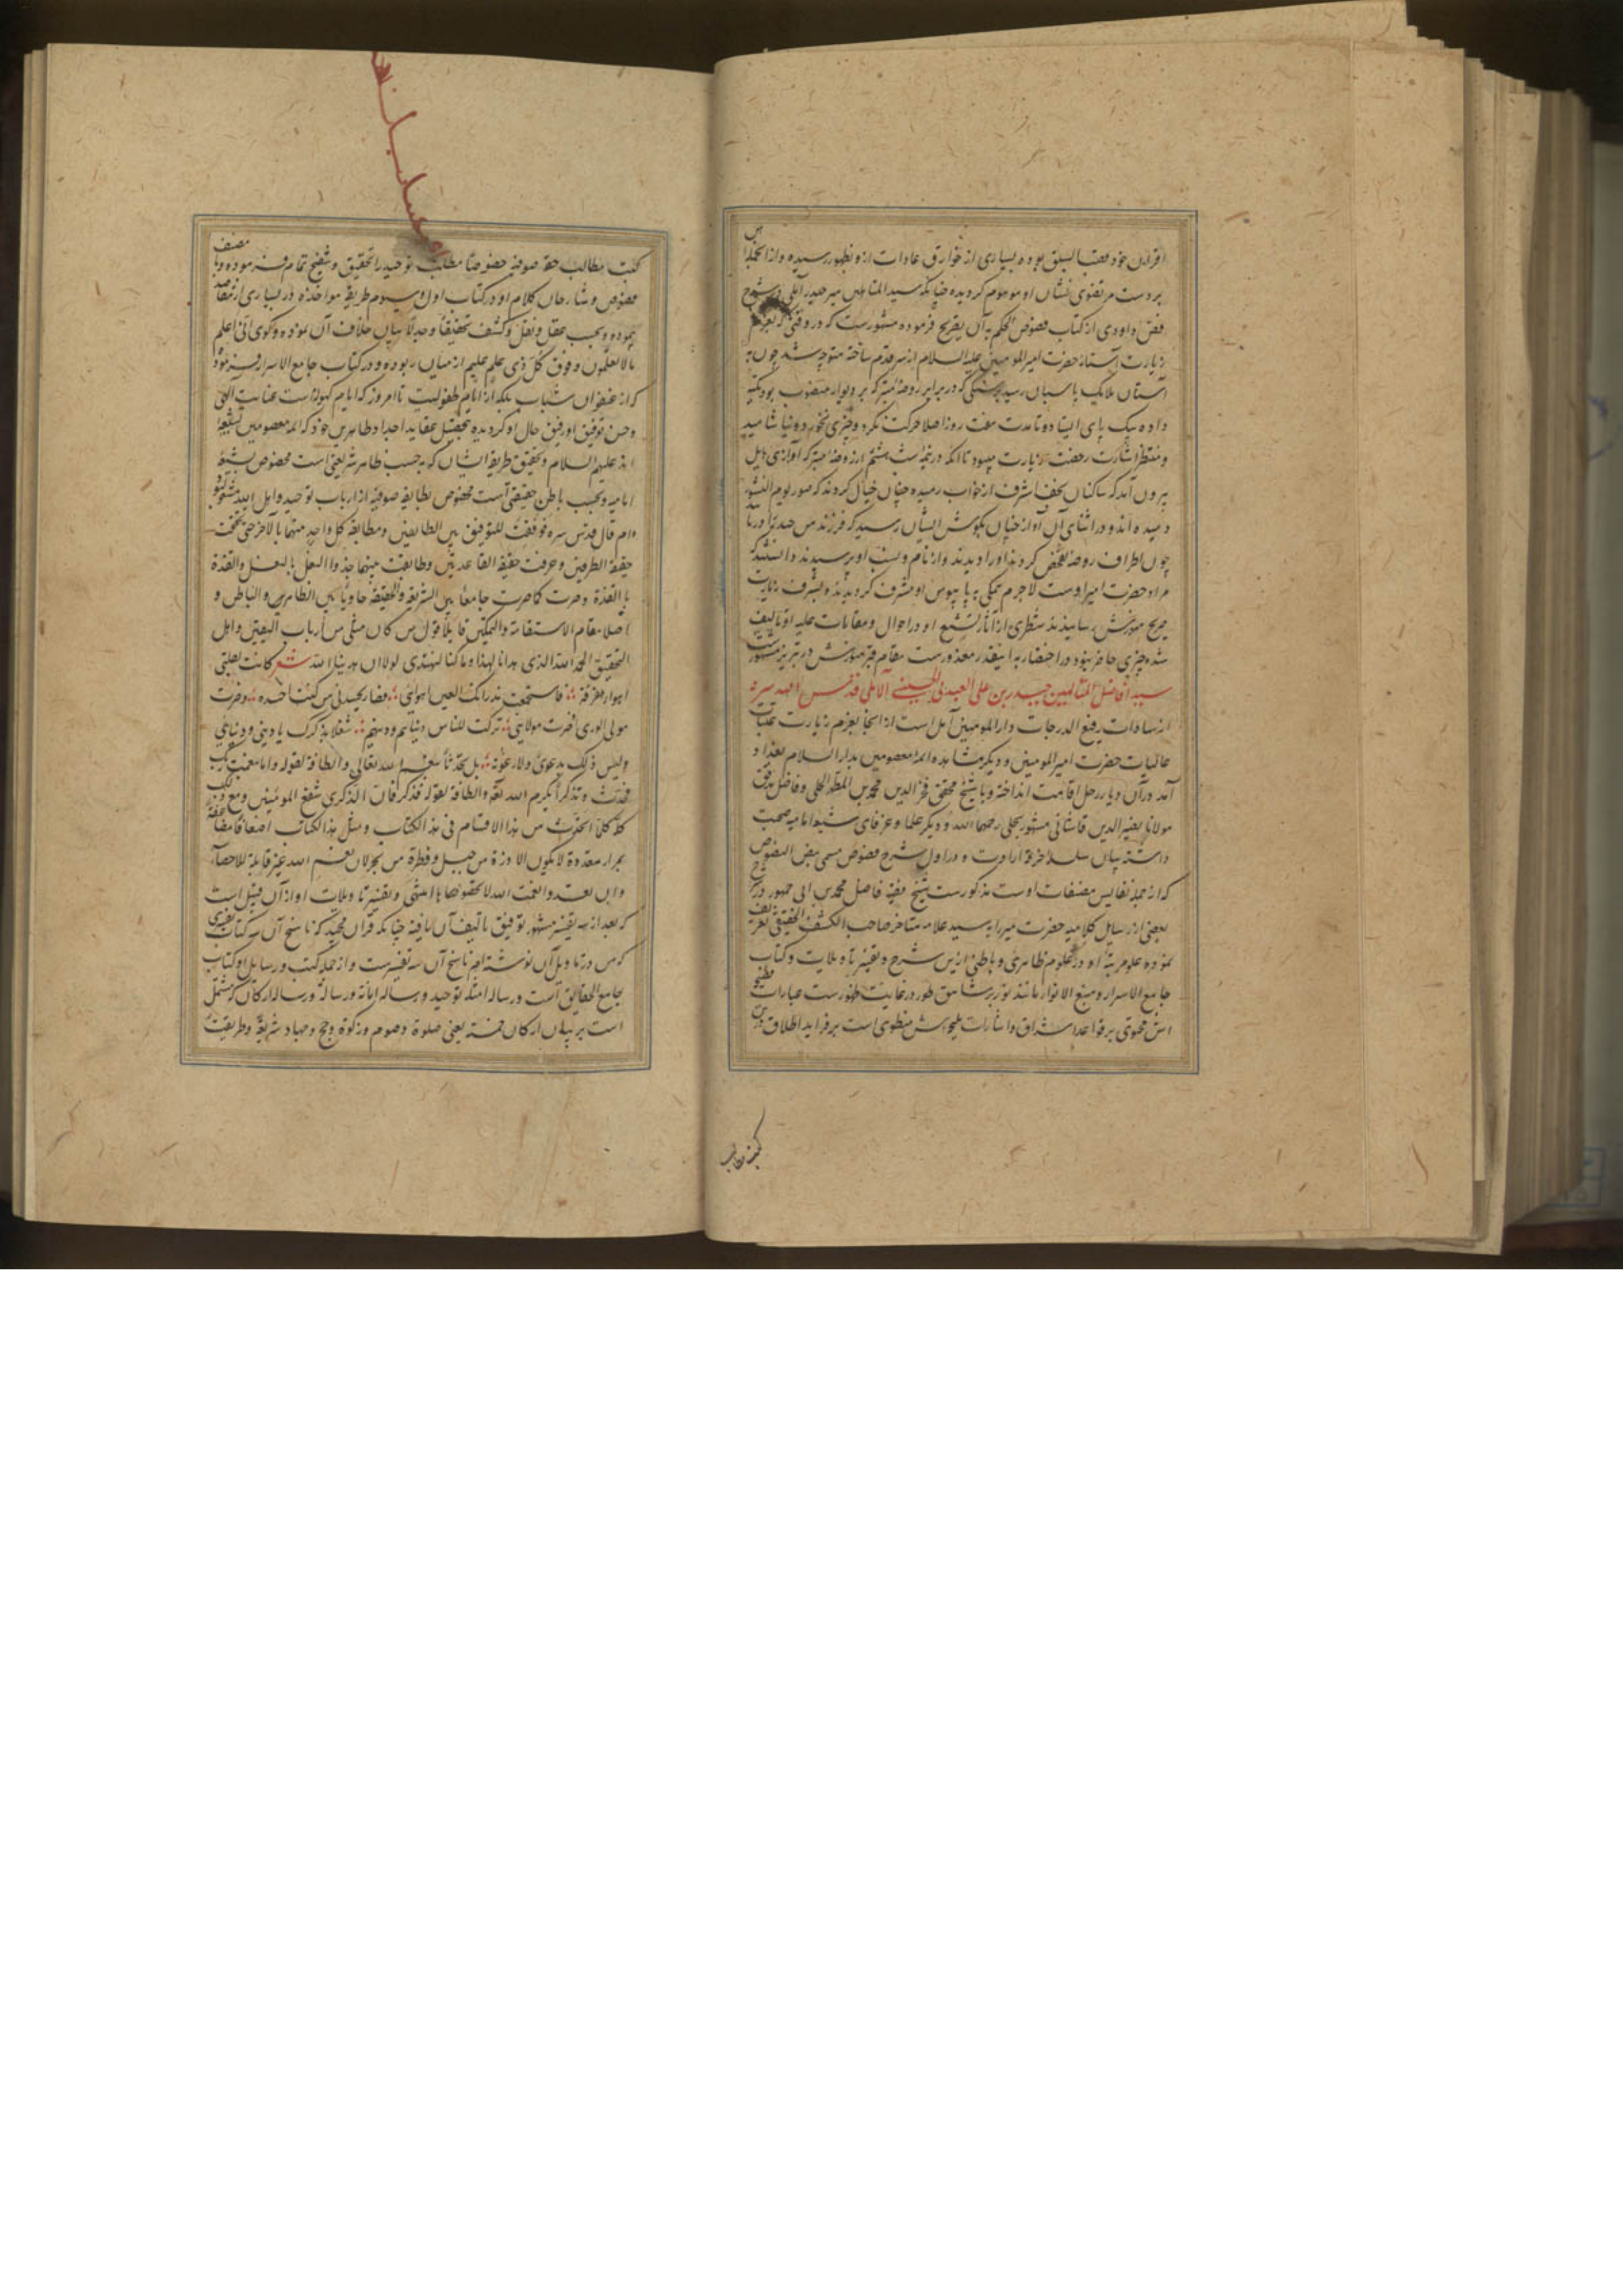 اقران خود قصب السبق بوده و بسیاری از خوارق عادات ازو بظهور رسیده و از انجمله
بر دست مرتضوی نشان او موموم کردیده چنانکه سید المتالهین میر حیدر آملی در شرح
فص داودی از کتاب فصوص الحکم بآن تصریح فرموده مشهورست که در وقتی که بعزم
زیارت آستانه حضرت امیر المومنین علیه السلام از سر قدم ساخته متوجه شد چون به
آستان ملایک پاسبان رسید بر سنگی که در برابر روضه متبرکه بر دیوار منصوب بود تکیه
داده بیک پای ایستاده تا مدت هفت روز اصلا حرکت نکرد و چیزی نخورد و نیاشامید
و منتظر اشارت رخصت زیارت میبود تا آنکه در شب هشتم از روضه متبرکه آوازی هایل
بیرون آمد که ساکنان نجف اشرف از خواب رمیده چنان خیال کردند که صور یوم النشور
دمیده اند و در اثنای آن آواز چنان بکوش ایشان رسید که فرزند من حیدر را دریابید
چون اطراف روضه تفحص کردند او را دیدند و از نام و نسب او پرسیدند دانستند که
مراد حضرت امیر اوست لاجرم همکی به پابوس او مشرف کردیدند و بشرف زیارت
ضریح منورش رسانیدند شطری از آثار تشیع او در احوال و مقامات علیه او تالیف
شده چیزی حاضر نبود در اختصار به اینقدر معذورست مقام قبر منورش در تبریز مشهورست
سید افاضل المتالهین حیدر بن علی العبیدلی الحسینی الآملی قدس الله سره
از سادات رفیع الدرجات دار المومنین آمل است از آنجا بعزم زیارت عتبات
عالیات حضرت امیر المومنین و دیکر مشاهد ائمه معصومین بدار السلام بغداد
آمد در آن دیار رحل اقامت انداخته و با شیخ محقق فخر الدین محمد بن المطهر الحلی و فاضل مدقق
مولانا نصیر الدین قاشانی مشهور بحلی رحمهما الله و دیکر علما و عرفای شیعه امامیه صحبت
داشته بیان سلسله خرقه ارادت او در اول شرح فصوص مسمی بنص النصوص
که از جمله نفایس مصنفات اوست مذکورست شیخ فقیه فاضل محمد بن ابی جمهور در شرح
بعضی از رسایل کلامیه حضرت میر را به سید علامه متاخر صاحب الکشف الحقیقی تعریف
نموده علو مرتبه او در علوم ظاهری و باطنی ازین شرح و تفسیر تاویلات و کتاب
جامع الاسرار و منبع الانوار مانند نور بر شاهق طور در غایت ظهورست عبارات
اش محتوی بر قواعد اشراق و اشارات ملیحه اش منطوی است بر فراید اطلاق
کتب مطالب
کتب مطالب حقه صوفیه خصوصا مطلب توحید را تحقیق و تنقیح تمام فرموده و با مصنف
فصوص و شارحان کلام او در کتاب اول و سیوم طریق مواخذه در بسیاری از مقاصد
پیموده و بحسب عقل و نقل و کشف تحقیقا و جدلا بیان خلاف آن نموده و کوی انی اعلم
ما لا تعلمون و فوق کل ذی علم علیم از میان ربوده و در کتاب جامع الاسرار فرموده
که از عنفوان شباب بلکه از ایام طفولیت تا امروز که ایام کهولت است عنایت الهی
و حسن توفیق او رفیق حال او کردیده بتحصیل عقاید اجداد طاهرین خود که ائمه معصومین
اند علیهم السلام و تحقیق طریقه ایشان که بحسب ظاهر شریعتی است مخصوص بشیعه
امامیه و بحسب باطن حقیقتی است مخصوص بطایفه صوفیه از ارباب توحید و اهل الله مشغول بود
ام قال قدس سره فوفقت للتوفیق بین الطایفتین و مطابقة کل واحد منهما بالاخر حتی تحققت
حقیقة الطرفین و عرفت حقیقة القاعدتین و طابقت بینهما حذو النعل بالنعل و القذة
بالقذة و صرت کما صرت جامعا بین الشریعة و الحقیقة حاویا بین الظاهر و الباطن و
اصلا مقام الاستقامة و التمکین قایلا قول من کان مثلی من ارباب الیقین و اهل
التحقیق الحمد لله الذی هدانا لهذا و ما کنا لنهتدی لولا ان هدینا الله شعر کانت لقلبی
اهواء مفرقة فاستجمعت مذ راتک العین اهوائی فصار یحسدنی من کنت احسده و صرت
مولی الوری اذ صرت مولائی ترکت للناس دنیاهم و دینهم شغلا بذکرک یا دینی و دنیائی
و لیس ذلک بدعوی و لا رعونة بل تحدثا بنعم الله تعالی و الطافه لقوله و اما بنعمة ربک
فحدث و تذکرا بکرم الله تعالی و الطافه لقوله فذکر فان الذکری تنفع المومنین و مع ذلک
کله کلما تحدث من هذا الاقسام فی هذا الکتاب و مثل هذا الکتاب اضعافا مضاعفة
بمرار متعددة لا یکون الا ذرة من جبل و قطرة من بحر لان نعم الله غیر قابلة للاحصاء
و ان تعدوا نعمت الله لا تحصوها انتهی و تفسیر تاویلات او از آن قبیل است
که بعد از سه تفسیر مشهور توفیق تالیف آن یافته چنانکه قرآن مجید که ناسخ آن سه کتاب
که من در تاویل آن نوشته ام نیز ناسخ آن سه تفسیرست و از جمله کتب و رسایل او کتاب
جامع الحقایق است و رساله امثله توحید و رساله امانة و رساله و رساله ارکان که مشتمل
است بر بیان ارکان خمسه یعنی صلوة و صوم و زکوة و حج و جهاد شریعة و طریقت